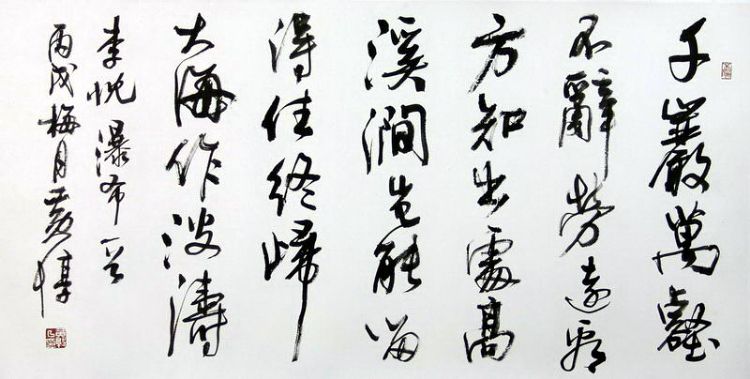 千巖萬壑
不辭勞遠看
方知出處高
溪澗豈能留
得住終歸
大海作波濤
李忱瀑布一首
丙戌梅月黃惇